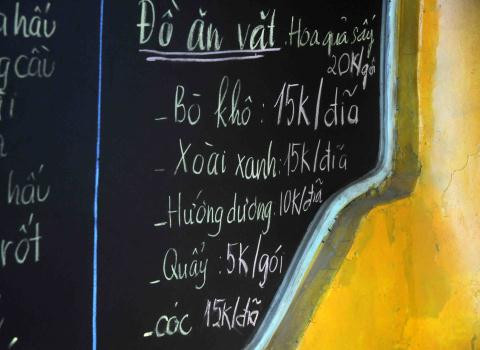 hấu
g cầu
i
hấu
rốt
Đồ ăn vặt
Hoa quả sấy
20K/gói
- Bò khô : 15K/đĩa
- Xoài xanh : 15K/đĩa
- Hướng dương : 10K/đĩa
- Quẩy : 5K/gói
- cóc 15K/đĩa